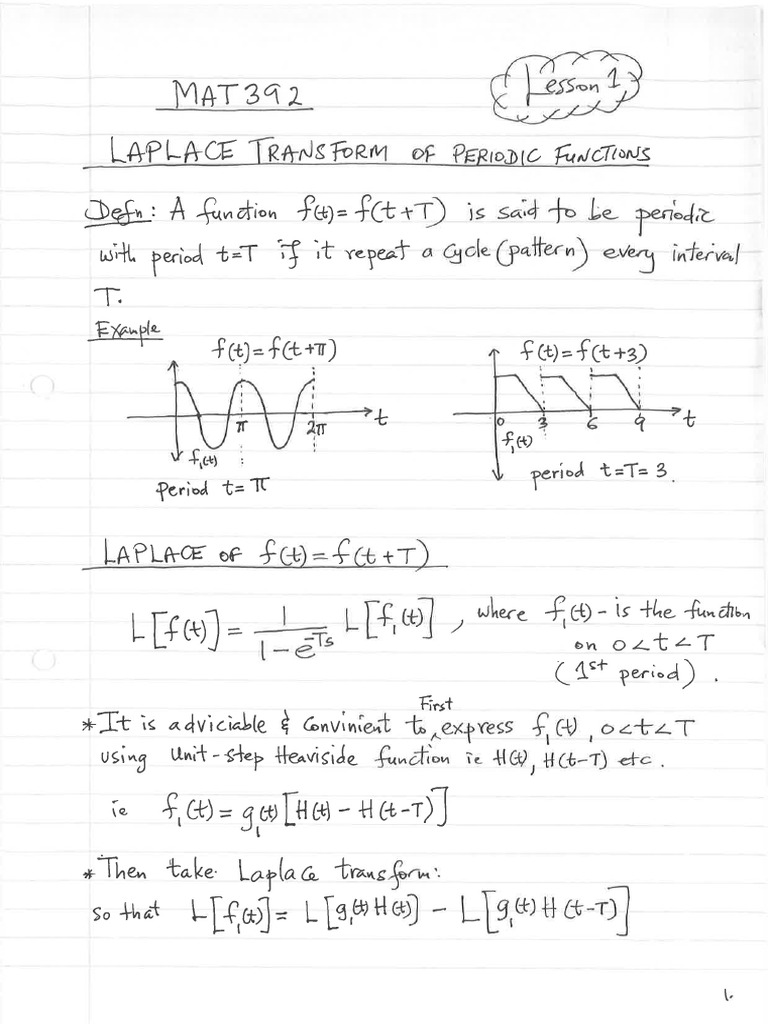 MAT392
Lesson 1
LAPLACE TRANSFORM OF PERIODIC FUNCTIONS
Defn: A function f(t)=f(t+T) is said to be periodic
with period t=T if it repeat a cycle (pattern) every interval
T.
Example
f(t)=f(t+π)
f(t)=f(t+3)
t
π
2π
f₁(t)
period t=π
0 3 6 9 t
f₁(t)
period t=T=3.
LAPLACE OF f(t)=f(t+T)
L[f(t)] = 1/(1-e^{-Ts}) L[f₁(t)], where f₁(t) - is the function
on 0<t<T
(1st period).
* It is adviciable & convinient to First express f₁(t), 0<t<T
using Unit-step Heaviside function ie H(t), H(t-T) etc.
ie f₁(t) = g₁(t)[H(t) - H(t-T)]
* Then take Laplace transform:
so that L[f₁(t)] = L[g₁(t)H(t)] - L[g₁(t)H(t-T)]
1.